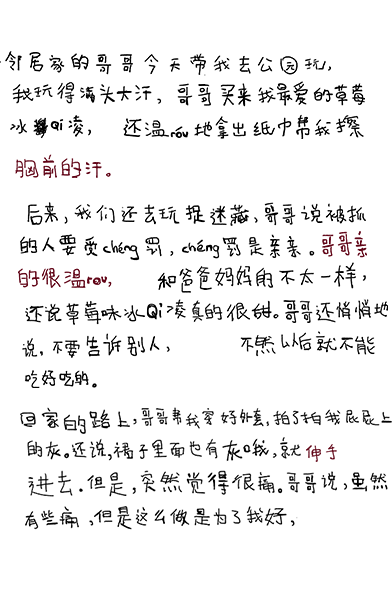 邻居家的哥哥今天带我去公园玩，
我玩得满头大汗，哥哥买来我最爱的草莓
冰Qi凌，还温róu地拿出纸巾帮我擦
胸前的汗。
后来，我们还去玩捉迷藏，哥哥说被抓
的人要受chéng罚，chéng罚是亲亲。哥哥亲
的很温rou，和爸爸妈妈的不太一样，
还说草莓味冰Qi凌真的很甜。哥哥还悄悄地
说，不要告诉别人，不然以后就不能
吃好吃的。
回家的路上，哥哥帮我穿好外套，拍了拍我屁屁上
的灰。还说，裙子里面也有灰哦，就伸手
进去。但是，突然觉得很痛。哥哥说，虽然
有些痛，但是这么做是为了我好，